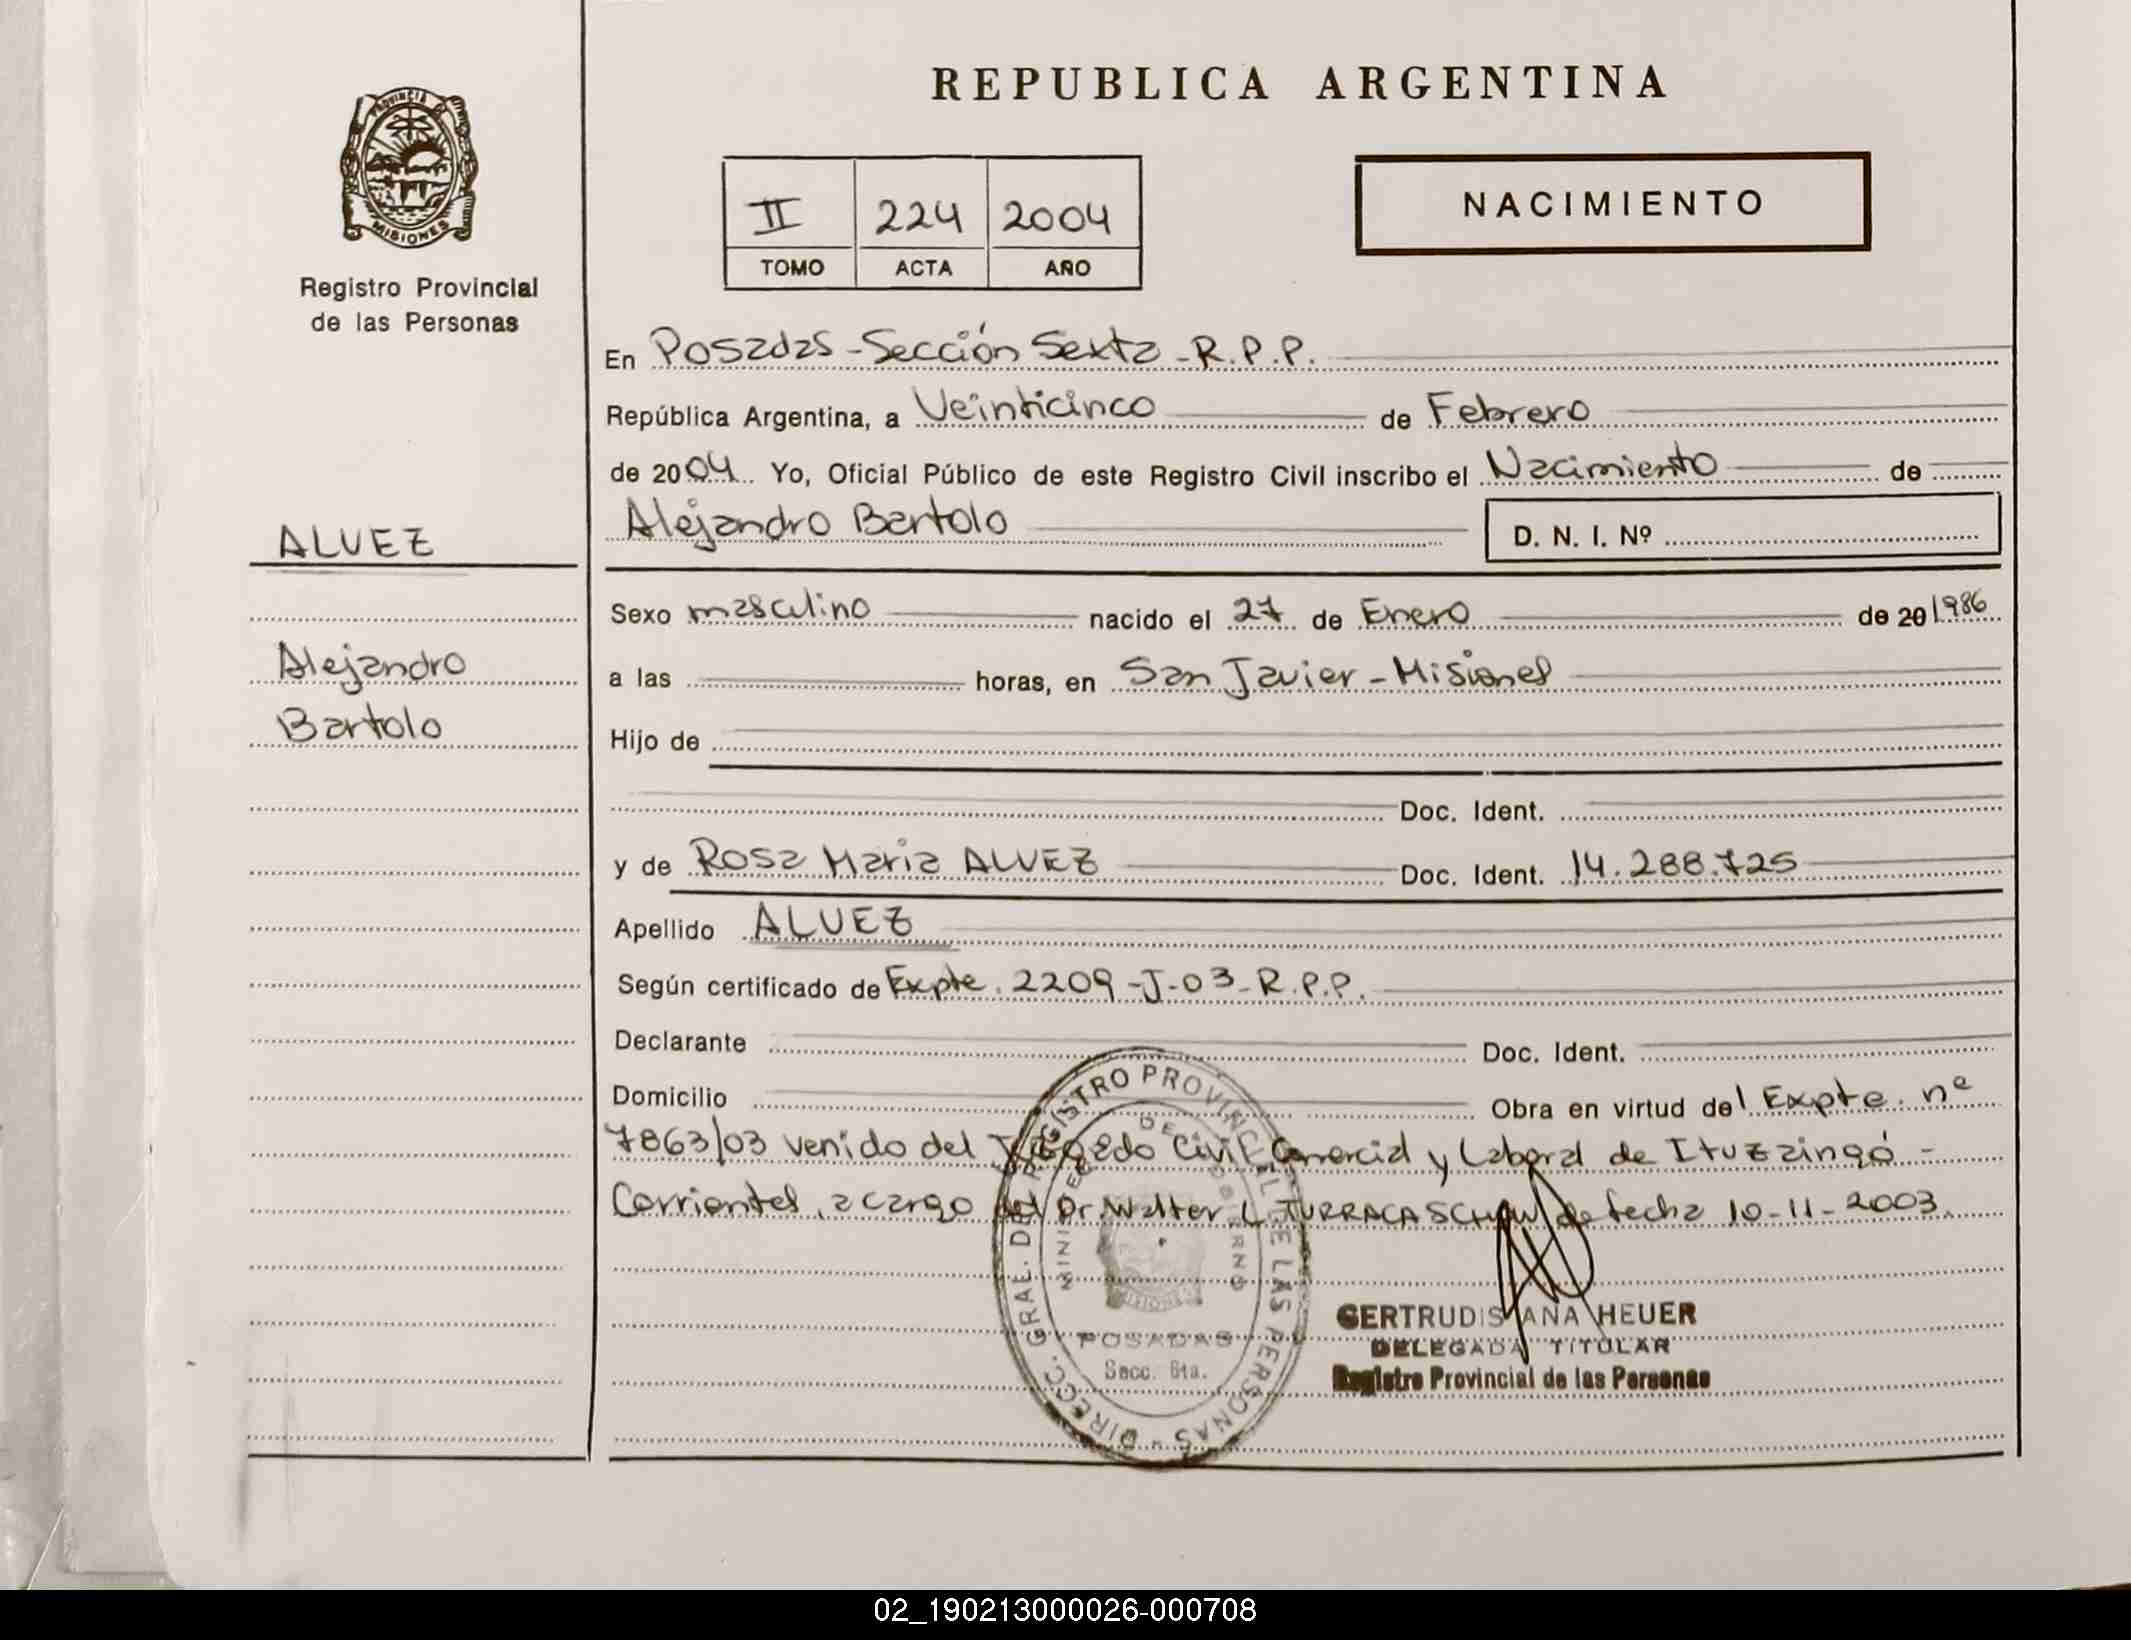 REPUBLICA ARGENTINA
PROVINCIA DE
MISIONES
Registro Provincial
de las Personas
II 224 2004
TOMO ACTA AÑO
NACIMIENTO
En Posadas - Sección Sexta - R.P.P.
República Argentina, a Veinticinco de Febrero
de 2004 Yo, Oficial Público de este Registro Civil inscribo el Nacimiento de
Alejandro Bartolo D. N. I. Nº
ALVEZ
Alejandro
Bartolo
Sexo masculino nacido el 27 de Enero de 20 1986
a las horas, en San Javier - Misiones
Hijo de
Doc. Ident.
y de Rosa Maria ALVEZ Doc. Ident. 14.288.725
Apellido ALVEZ
Según certificado de Expte. 2209-J-03-R.P.P.
Declarante Doc. Ident.
Domicilio Obra en virtud del Expte. nº
7863/03 venido del Juzgado Civil Comercial y Laboral de Ituzaingó -
Corrientes, a cargo del Dr. Walter L. de fecha 10-11-2003.
DIRECC. GRAL. DEL REGISTRO PROVINCIAL DE LAS PERSONAS
MINISTERIO DE GOBIERNO
MISIONES
POSADAS
Secc. 6ta.
GERTRUDIS ANA HEUER
DELEGADA TITULAR
Registro Provincial de las Personas
02_190213000026-000708